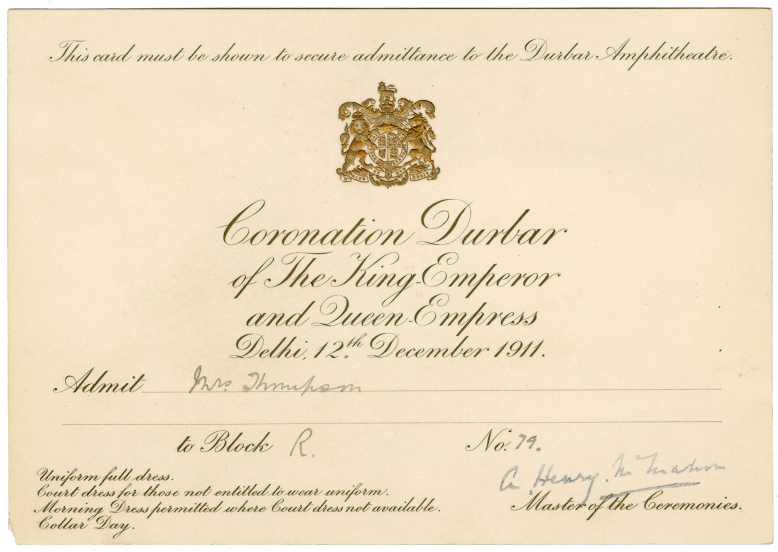 This card must be shown to secure admittance to the Durbar Amphitheatre.
Coronation Durbar
of The King-Emperor
and Queen-Empress
Delhi, 12th. December 1911.
Admit Mrs Thompson
to Block R. No. 79.
Uniform full dress.
Court dress for those not entitled to wear uniform.
Morning Dress permitted where Court dress not available.
Collar Day.
A. Henry. McMahon
Master of the Ceremonies.